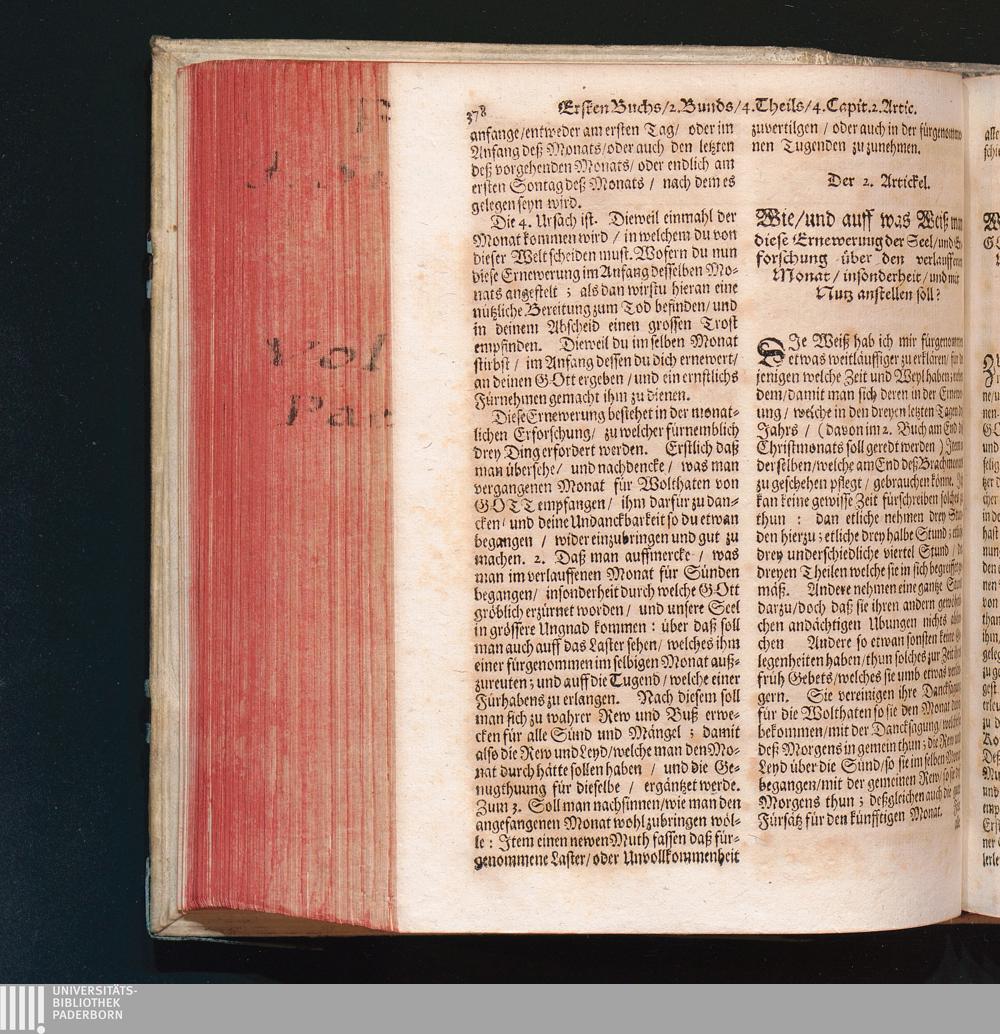 378
Ersten Buchs/2.Bunds/4.Theils/4.Capit.2.Artic.
anfange/entweder am ersten Tag/ oder im
Anfang deß Monats/oder auch den letzten
deß vorgehenden Monats/ oder endlich am
ersten Sontag deß Monats / nach dem es
gelegen seyn wird.
Die 4. Ursach ist. Dieweil einmahl der
Monat kommen wird / in welchem du von
dieser Welt scheiden must. Wofern du nun
diese Ernewerung im Anfang desselben Mo-
nats angestelt ; als dan wirstu hieran eine
nutzliche Bereitung zum Tod befinden/ und
in deinem Abscheid einen grossen Trost
empfinden. Dieweil du im selben Monat
stirbst / im Anfang dessen du dich ernewert/
an deinen GOtt ergeben / und ein ernstlichs
Fürnehmen gemacht ihm zu dienen.
Diese Ernewerung bestehet in der monat-
lichen Erforschung/ zu welcher fürnemblich
drey Ding erfordert werden. Erstlich daß
man übersehe/ und nachdencke / was man
vergangenen Monat für Wolthaten von
GOTT empfangen / ihm darfür zu dan-
cken/ und deine Undanckbarkeit so du etwan
begangen / wider einzubringen und gut zu
machen. 2. Daß man auffmercke / was
man im verlauffenen Monat für Sünden
begangen/ insonderheit durch welche GOtt
gröblich erzürnet worden/ und unsere Seel
in grössere Ungnad kommen : über daß soll
man auch auff das Laster sehen/ welches ihm
einer fürgenommen im selbigen Monat auß-
zureuten ; und auff die Tugend / welche einer
Fürhabens zu erlangen. Nach diesem soll
man sich zu wahrer Rew und Buß erwe-
cken für alle Sünd und Mängel ; damit
also die Rew und Leyd/welche man den Mo-
nat durch hätte sollen haben / und die Ge-
nugthuung für dieselbe / ergäntzet werde.
Zum 3. Soll man nachsinnen/wie man den
angefangenen Monat wohl zubringen wöl-
le : Item einen newen Muth fassen daß für-
genommene Laster/ oder Unvollkommenheit
zuvertilgen / oder auch in der
nen Tugenden zu zunehmen.
Der 2. Artickel.
Wie/und auff was Weiß
diese Ernewerung der Seel/und
forschung über den
Monat / insonderheit/ und mit
Nutz anstellen soll ?
DIe Weiß hab ich mir
etwas weitläuffiger zu erklären/
jenigen welche Zeit und Weyl haben
dem/damit man sich deren in der
ung / welche in den dreyen letzten
Jahrs / (davon im 2. Buch am End
Christmonats soll geredt werden)
derselben/welche am End deß
zu geschehen pflegt/ gebrauchen könne.
kan keine gewisse Zeit fürschreiben solches
thun : dan etliche nehmen drey
den hierzu ; etliche drey halbe Stund ;
drey underschiedliche viertel Stund /
dreyen Theilen welche sie in sich
mäß. Andere nehmen eine gantze
darzu/doch daß sie ihren andern
chen andächtigen Ubungen nichts
chen Andere so etwan sonsten keine
legenheiten haben/thun solches zur Zeit
früh Gebets/welches sie umb etwas
gern. Sie vereinigen ihre
für die Wolthaten so sie den Monat
bekommen/mit der Dancksagung/
deß Morgens in gemein thun ; die Rew
Leyd über die Sünd/so sie im selben
begangen/mit der gemeinen Rew/ so sie
Morgens thun ; deßgleichen auch die
Fürsätz für den künfftigen Monat.
Vol
UNIVERSITÄTS-
BIBLIOTHEK
PADERBORN